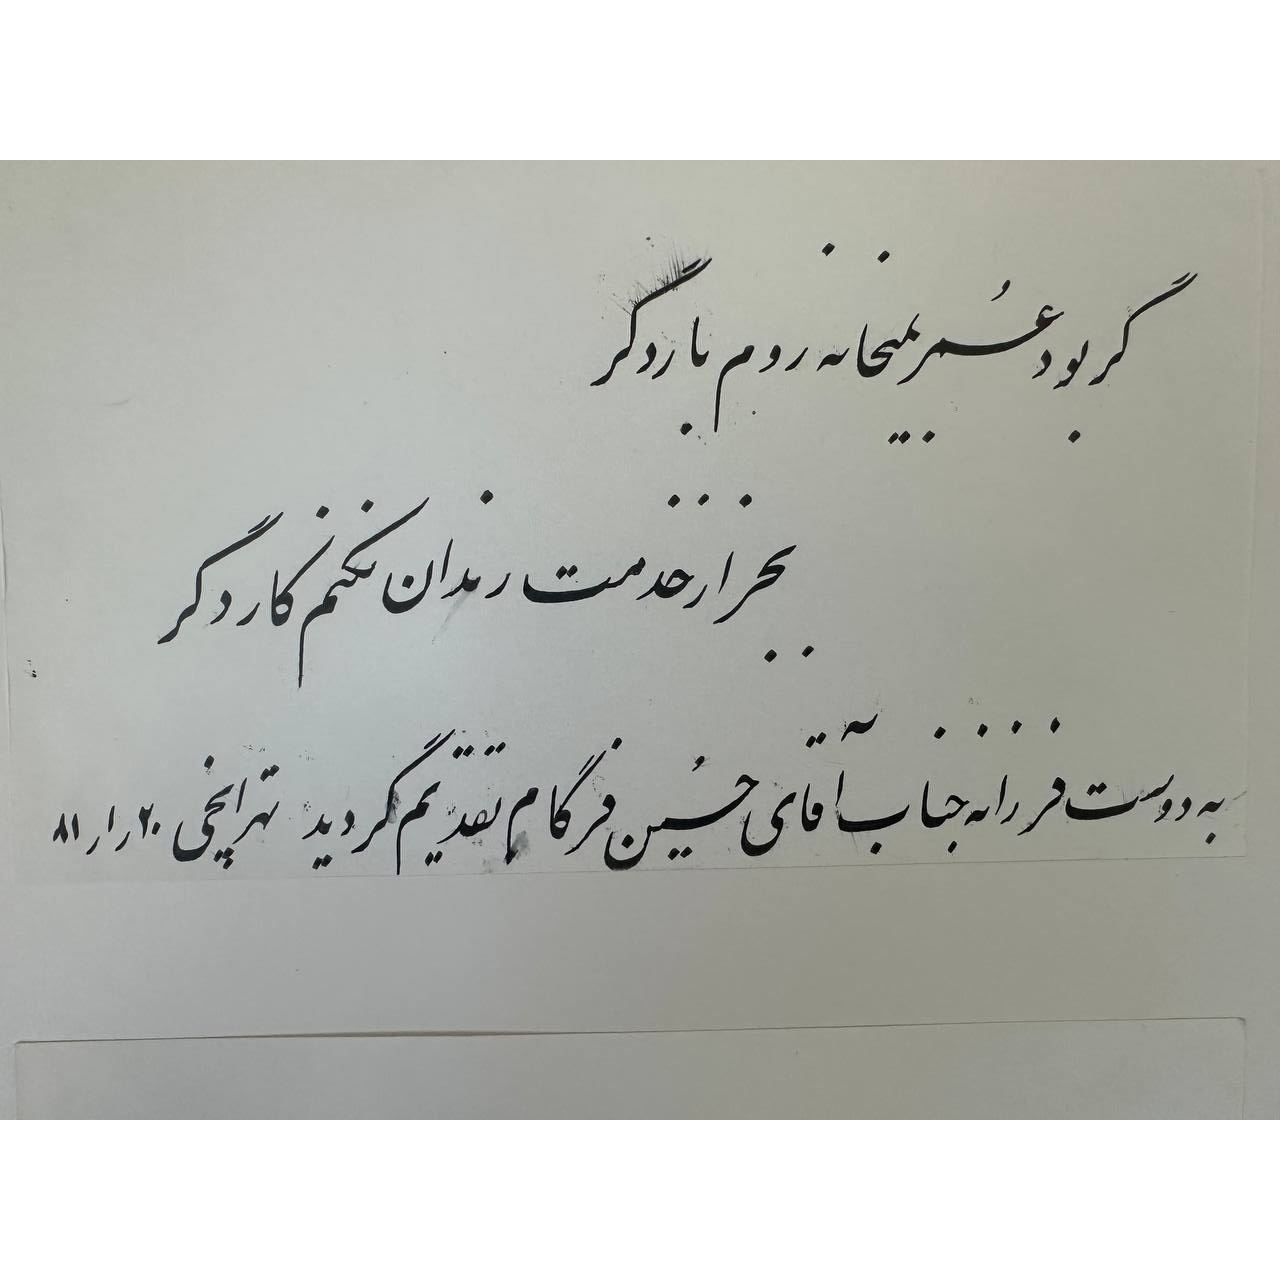 گر بود عُمر بمیخانه روم بار دگر
بجز از خدمت رندان نکنم کار دگر
به دوست فرزانه جناب آقای حُسین فرگام تقدیم گردید تهرانچی ۲۰ر۱ر۸۱